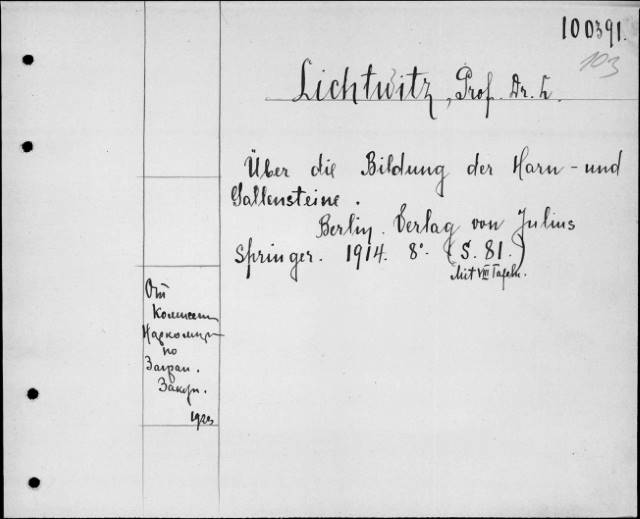 100391.
103
Lichtwitz, Prof. Dr. L.
Über die Bildung der Harn - und
Gallensteine.
Berlin. Verlag von Julius
Springer. 1914. 8°. (S. 81.)
Mit VIII Tafeln.
От
Комиссии
по
Загран.
Закуп.
1923